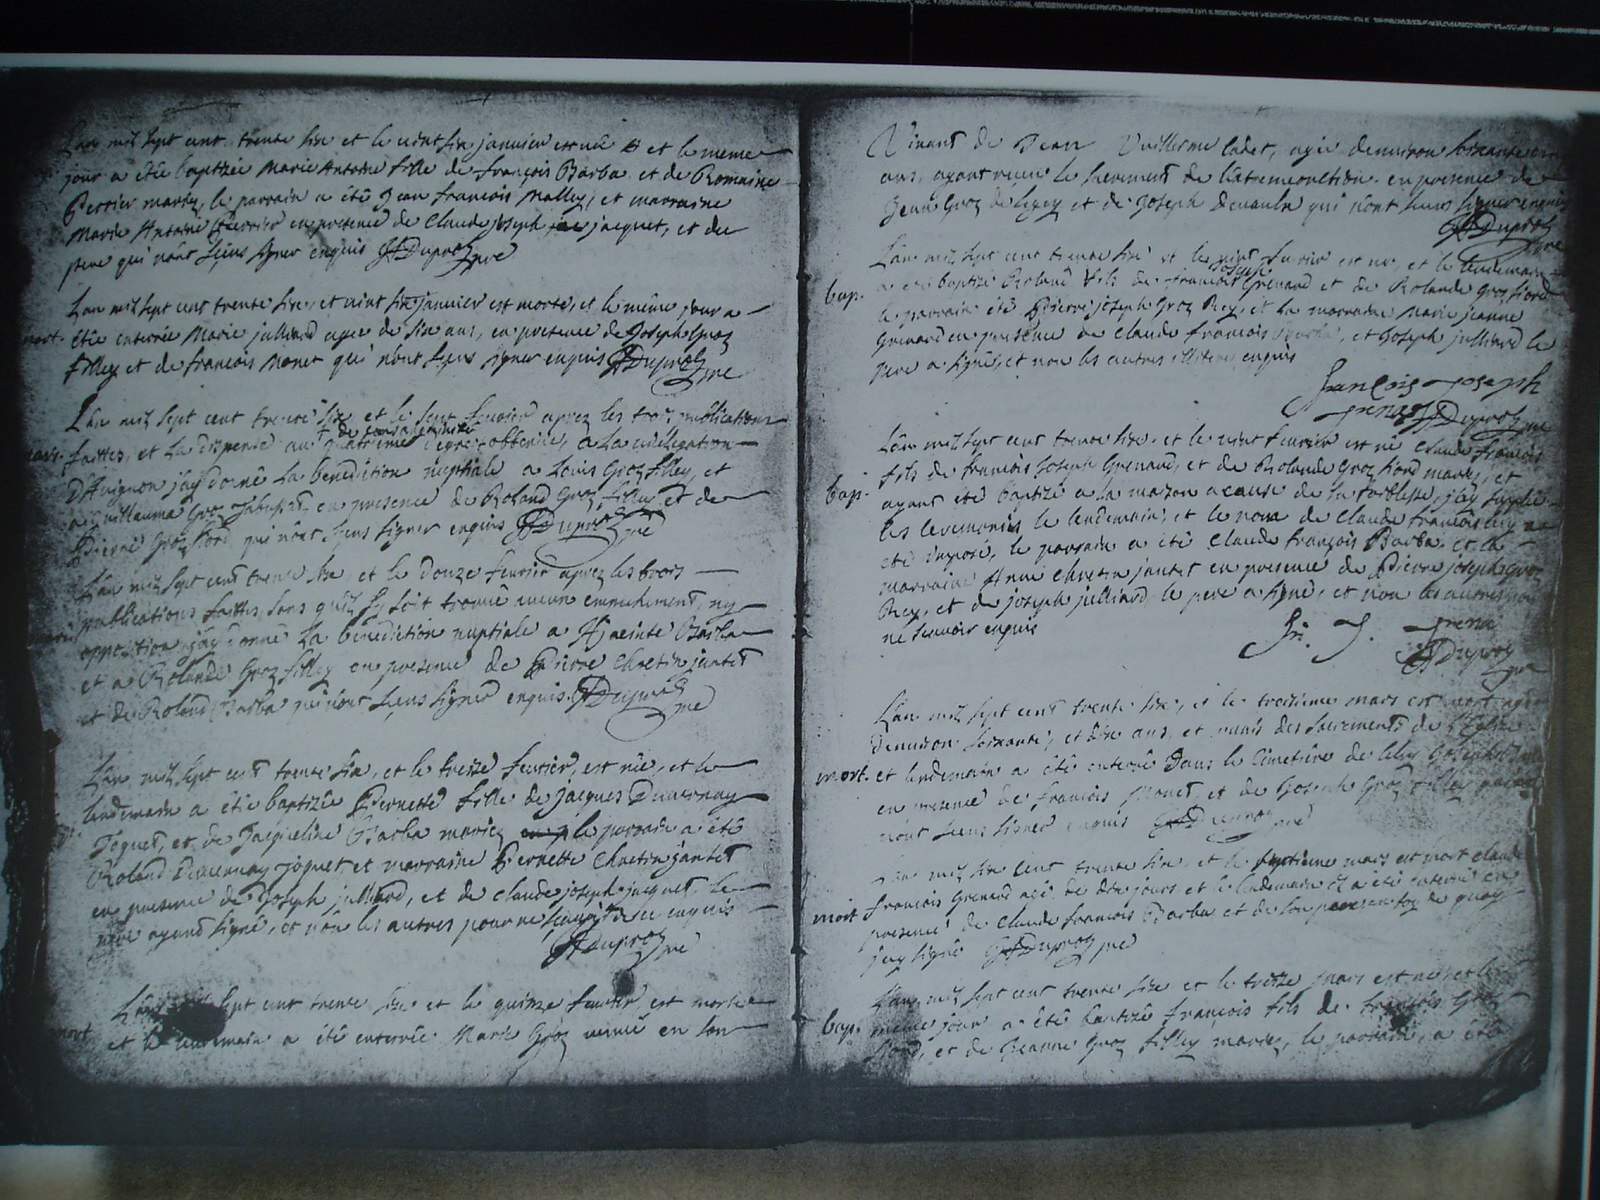 L'an mil sept cent trente six et le vint six janvier est née et le meme
jour a étée baptizée Marie Antoine fille de françois Barba et de Romaine
Perrier mariez, le parrain a été Jean francois Malley, et marraine
Marie Antoine Perrier en presence de Claude joseph jacquet, et du
pere qui n'ont sçeus signer enquis Duproz pre
L'an mil sept cent trente six, et vint six janvier est morte, et le même jour a
mort. étée enterrée Marie julliard agee de six ans, en presence de Joseph Groz
filley et de francois Monet qui n'ont sçeus signer enquis Duproz pre
L'an mil sept cent trente six et le sept fevrier aprez les trois publications
de consanguinité
faittes, et la dispense au quatrième degré obtenüe, a la vicelegation
D'Avignon j'ay donné la benediction nuptiale a Louis Groz filley, et
a Guillauma Groz en presence de Roland Groz filley et de
Pierre Groz hord qui n'ont sçeus signer enquis Duproz pre
L'an mil sept cent trente six, et le douze fevrier aprez les trois
publications faittes, sans qu'il s'y soit trouvé aucun empechement, ny
opposition j'ay donné la bénédiction nuptiale a Hyacinte Barba
et a Rolande Groz filley en presence de Pierre Chretin jantet
et de Roland Barba qui n'ont sçeus signer enquis Duproz pre
L'an mil sept cent trente six, et le treize fevrier, est née, et le
lendemain a étée baptizée Pernette fille de Jacques Daversnay
Joguet, et de Jacqueline Barba mariez le parrain a été
Roland Daversnay joguet et marraine Pernette Chretin jantet
en presence de Joseph julliard, et de claude joseph jacquet le
pere ayant signé, et non les autres pour ne sçavoir de ce enquis
Duproz pre
L'an sept cent trente six et le quinze fevrier est morte
mort et le lendemain a été enterrée Marie Groz veuve en son
Vivant de Jean Vuillerme Cadet, agée denviron soixante
ans, ayant receu le sacrement de l'extremeonction en presence de
Jean Groz de ligey et de Joseph qui n'ont sceus signer enquis
Duproz
pre
L'an mil sept cent trente six et le vint fevrier est né, et le lendemain
joseph
a été baptizé Roland fils de francois Grenard et de Rolande Groz hord
bap. le parrain été Pierre joseph Groz Rey, et la marraine Marie jeanne
Grenard en presence de Claude francois, et Joseph julliard le
pere a signé, et non les autres illiterez enquis
françois joseph
grenard Duproz pre
L'an mil sept cent trente six et le vint fevrier est né Claude francois
fils de francois Joseph Grenard, et de Rolande Groz hord mariez, et
bap. ayant été baptizé a la maison a cause de sa foiblesse, j'ay supplée
les ceremonies le lendemain, et le nom de Claude francois luy a
eté imposé, le parrain a été Claude françois Barba et la
marraine Anne Chretin jantet en presence de Pierre joseph Groz
Rey, et de joseph julliard le pere a signé, et non les autres pour
ne sçavoir enquis
fr. J. grena
Duproz
pre
L'an mil sept cent trente six, et le troisieme mars est mort agé
denviron soixante, et dix ans, et munis des sacrements de l'Eglise
mort. et lendemain a été enterré dans le cimetière de
en presence de francois Monet et de Joseph Groz filley
n'ont sceus signer enquis Duproz pre
L'an mil sept cent trente six et le septieme mars est mort claude
francois Grenard agé de dix jours et le lendemain il a été enterré en
mort presence de Claude francois Barba et de son pere en foy de quoy
j'ay signé Duproz pre
L'an mil sept cent trente six et le treize mars est né, et le
bap. même jour a été baptizé françois fils de françois Groz
hord, et de Jeanne Groz filley mariez, le parrain, a été